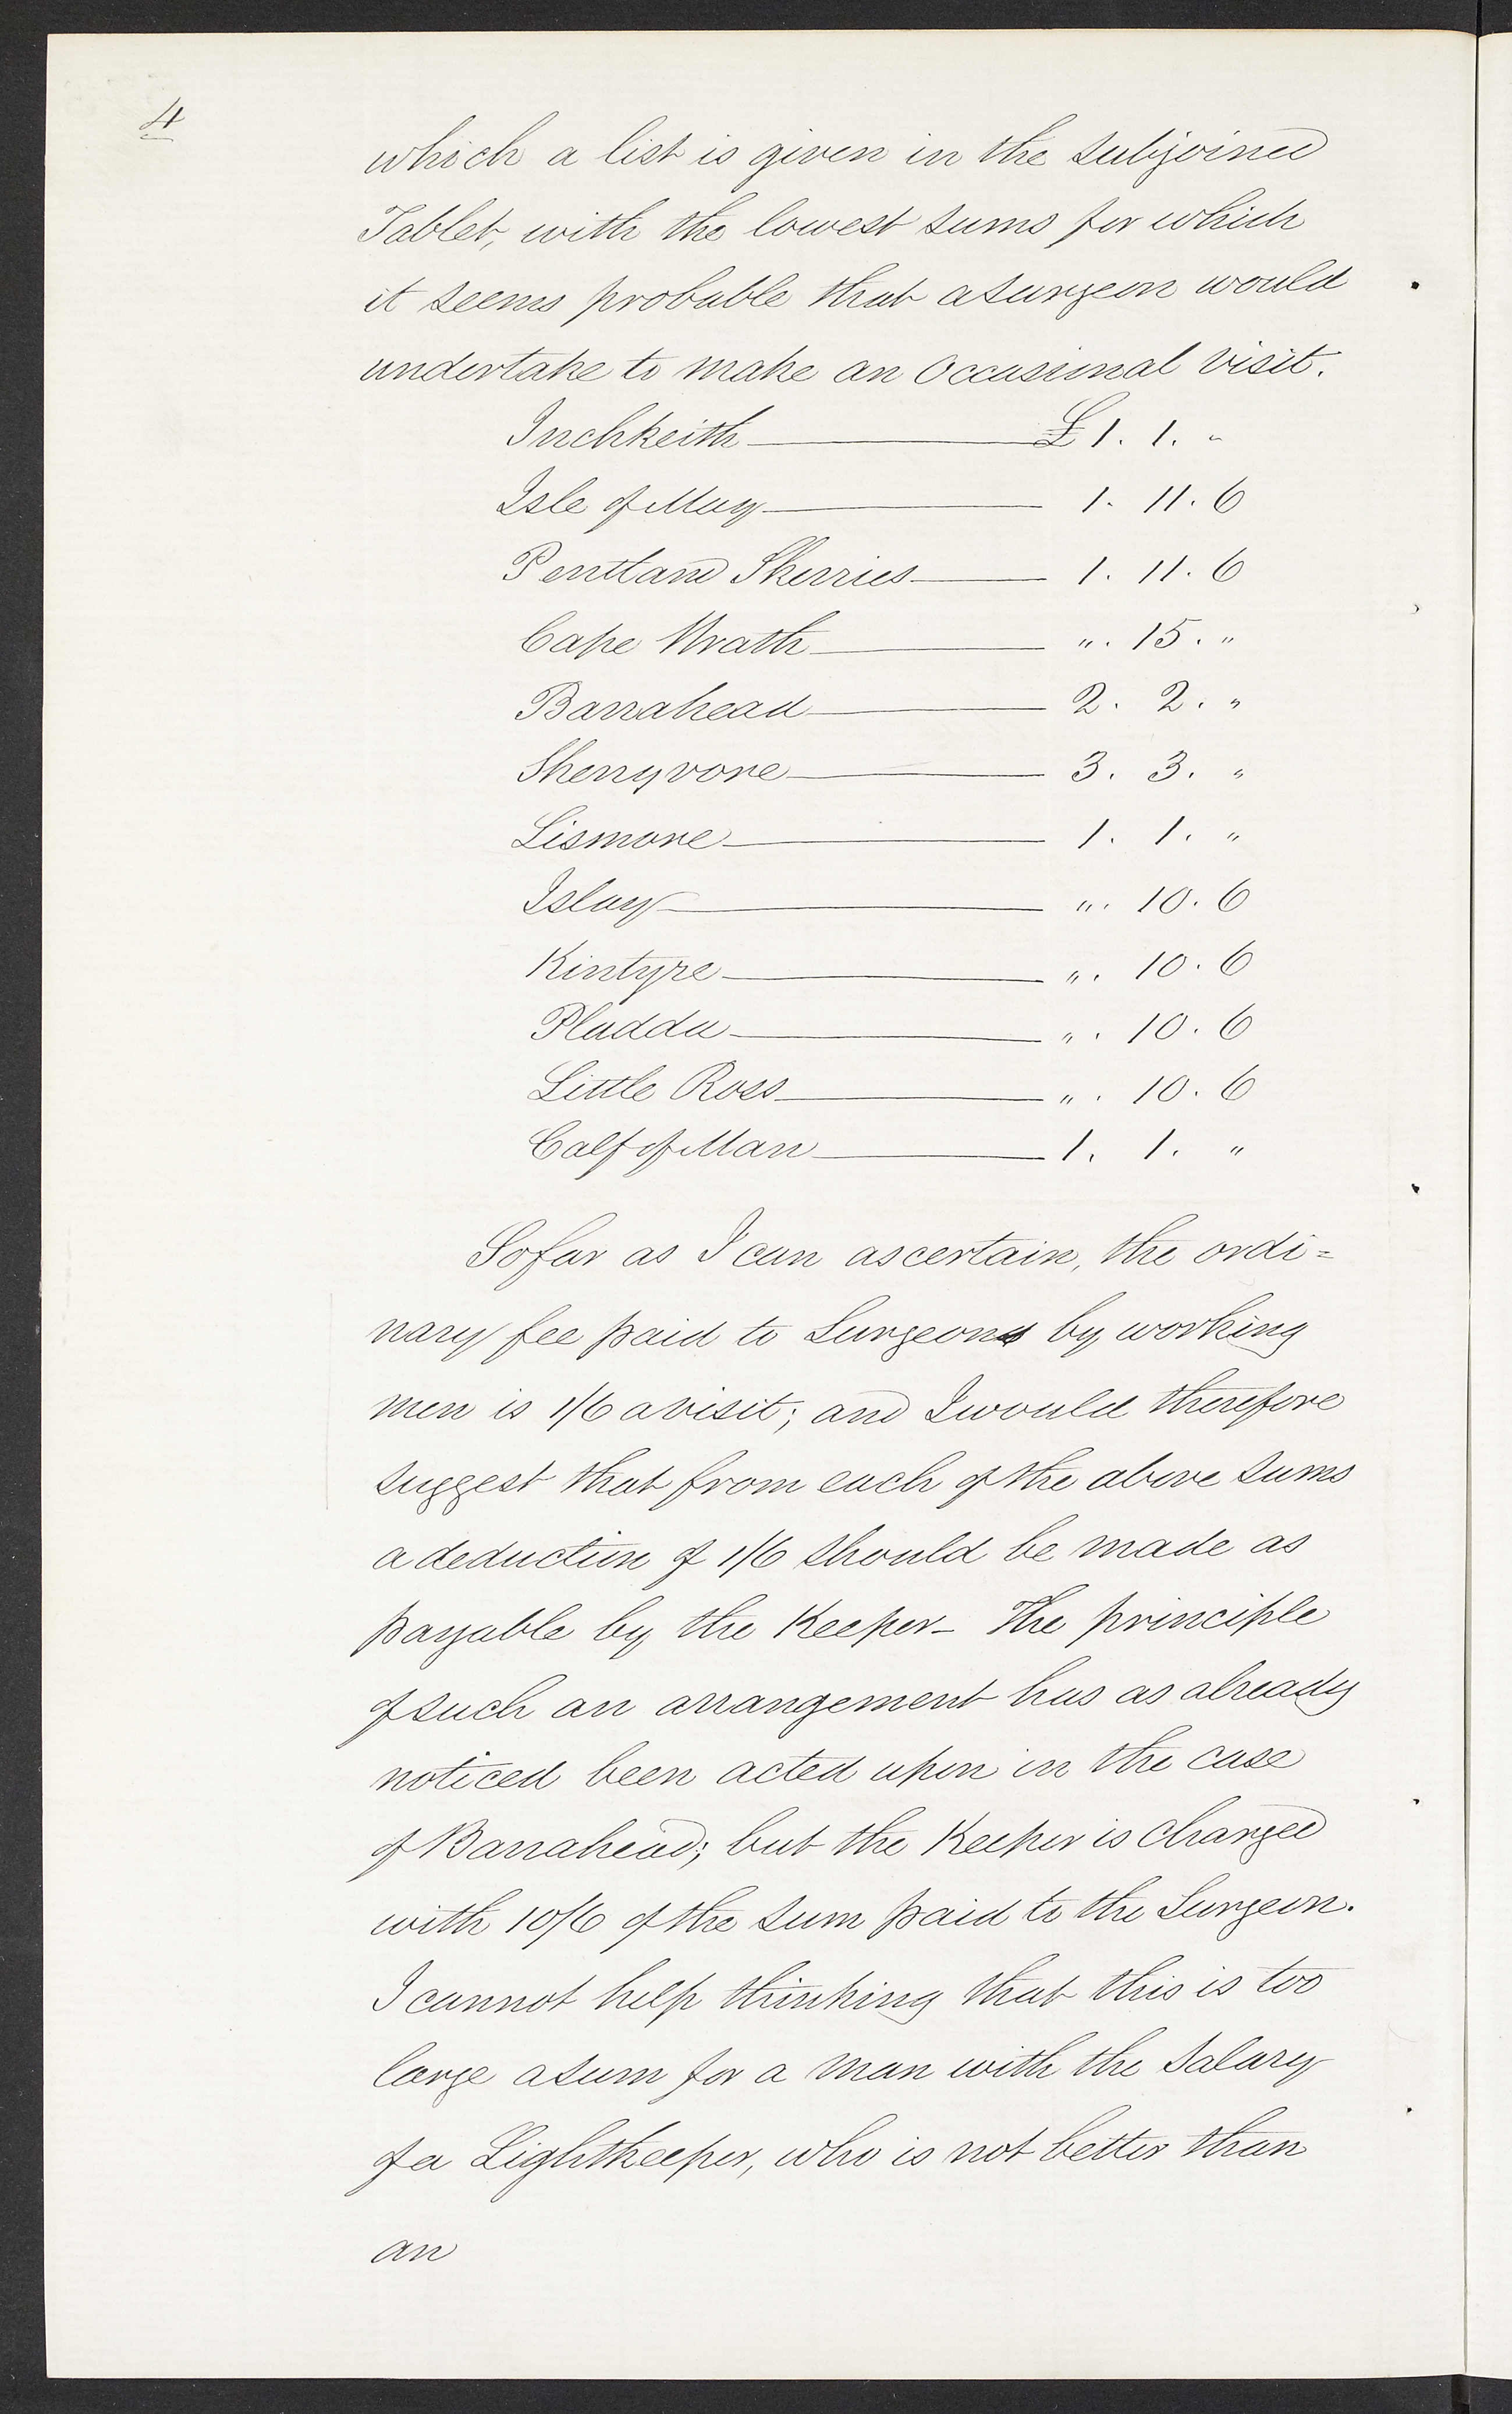 4
which a list is given in the subjoined
Tablet, with the lowest sums for which
it seems probable that a surgeon would
undertake to make an occasional visit.
Inchkeith £ 1. 1. "
Isle of May 1. 11. 6
Pentland Skerries 1. 11. 6
Cape Wrath ". 15. "
Barrahead 2. 2. "
Skerryvore 3. 3. "
Lismore 1. 1. "
Islay ". 10. 6
Kintyre ". 10. 6
Pladda ". 10. 6
Little Ross ". 10. 6
Calf of Man 1. 1. "
So far as I can ascertain, the ordi=
nary fee paid to Surgeons by working
men is 1/6 a visit; and I would therefore
suggest that from each of the above sums
a deduction of 1/6 should be made as
payable by the Keeper_ The principle
of such an arrangement has as already
noticed been acted upon in the case
of Barrahead; but the Keeper is charged
with 10/6 of the sum paid to the Surgeon.
I cannot help thinking that this is too
large a sum for a man with the Salary
of a Lightkeeper, who is not better than
an